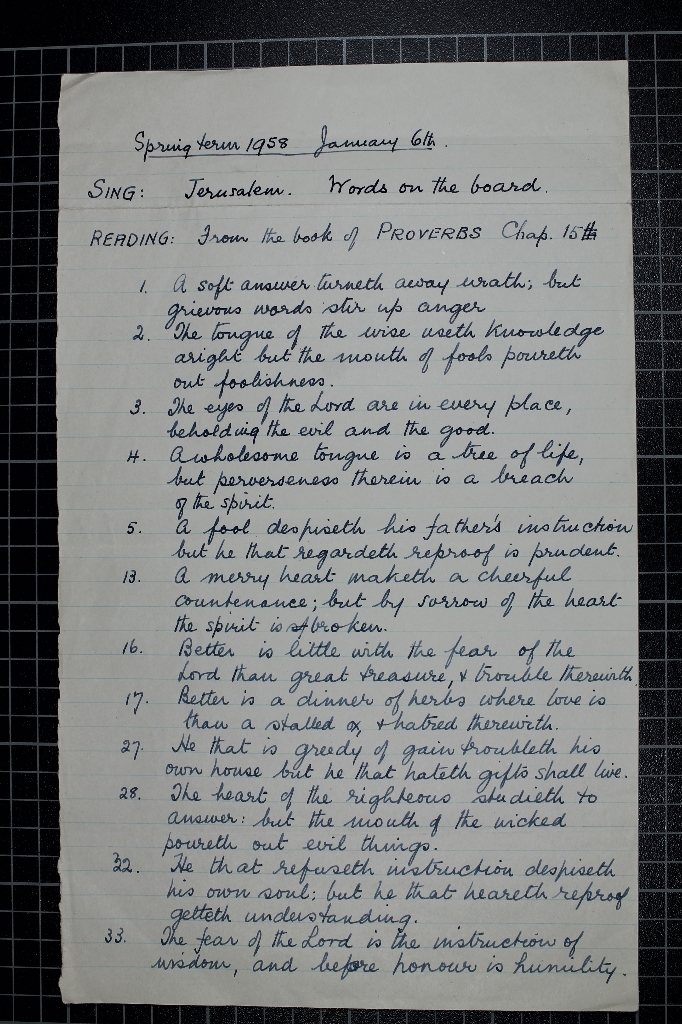 Spring term 1958 January 6th.
SING: Jerusalem. Words on the board.
READING: From the book of PROVERBS Chap. 15th
1. A soft answer turneth away wrath; but
grievous words stir up anger
2. The tongue of the wise useth knowledge
aright but the mouth of fools poureth
out foolishness.
3. The eyes of the Lord are in every place,
beholding the evil and the good.
4. A wholesome tongue is a tree of life,
but perverseness therein is a breach
of the spirit.
5. A fool despiseth his father's instruction
but he that regardeth reproof is prudent.
13. A merry heart maketh a cheerful
countenance; but by sorrow of the heart
the spirit is broken.
16. Better is little with the fear of the
Lord than great treasure, & trouble therewith
17. Better is a dinner of herbs where love is
than a stalled ox, & hatred therewith.
27. He that is greedy of gain troubleth his
own house but he that hateth gifts shall live.
28. The heart of the righteous studieth to
answer: but the mouth of the wicked
poureth out evil things.
32. He that refuseth instruction despiseth
his own soul: but he that heareth reproof
getteth understanding.
33. The fear of the Lord is the instruction of
wisdom, and before honour is humility.